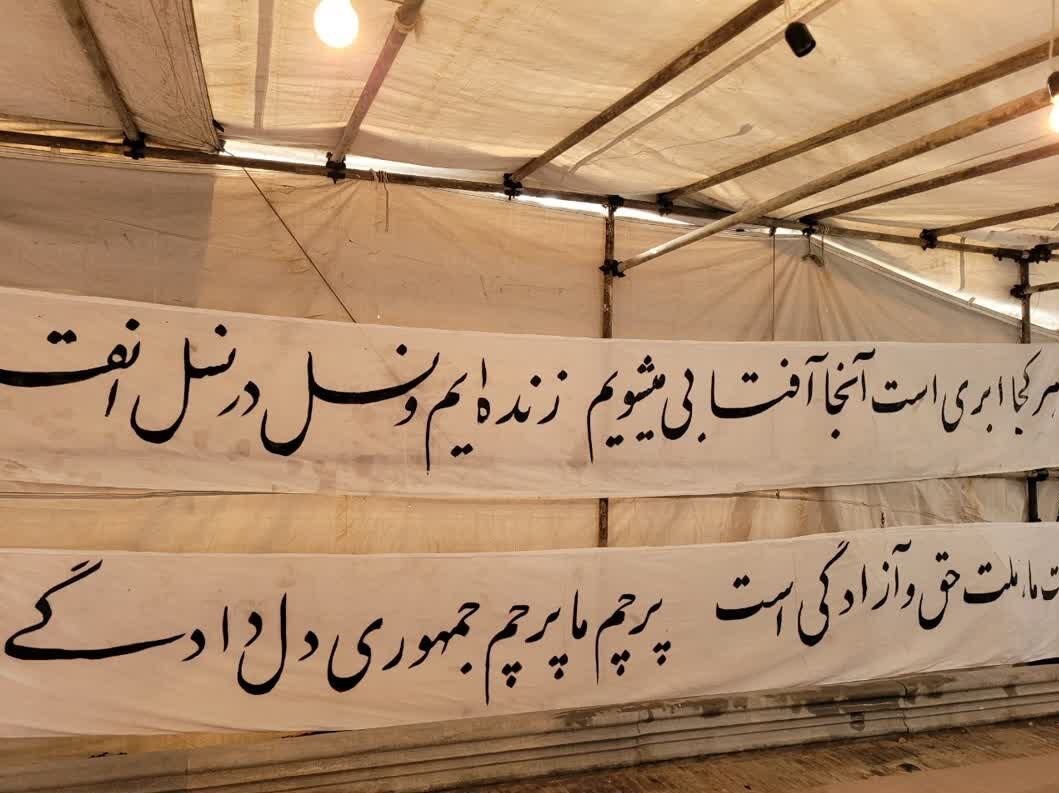 هر کجا ابری است آنجا آفتابی میشویم زنده‌ایم و نسل در نسل
ما، ملت حق و آزادگی است پرچم ما پرچم جمهوری دلدادگی